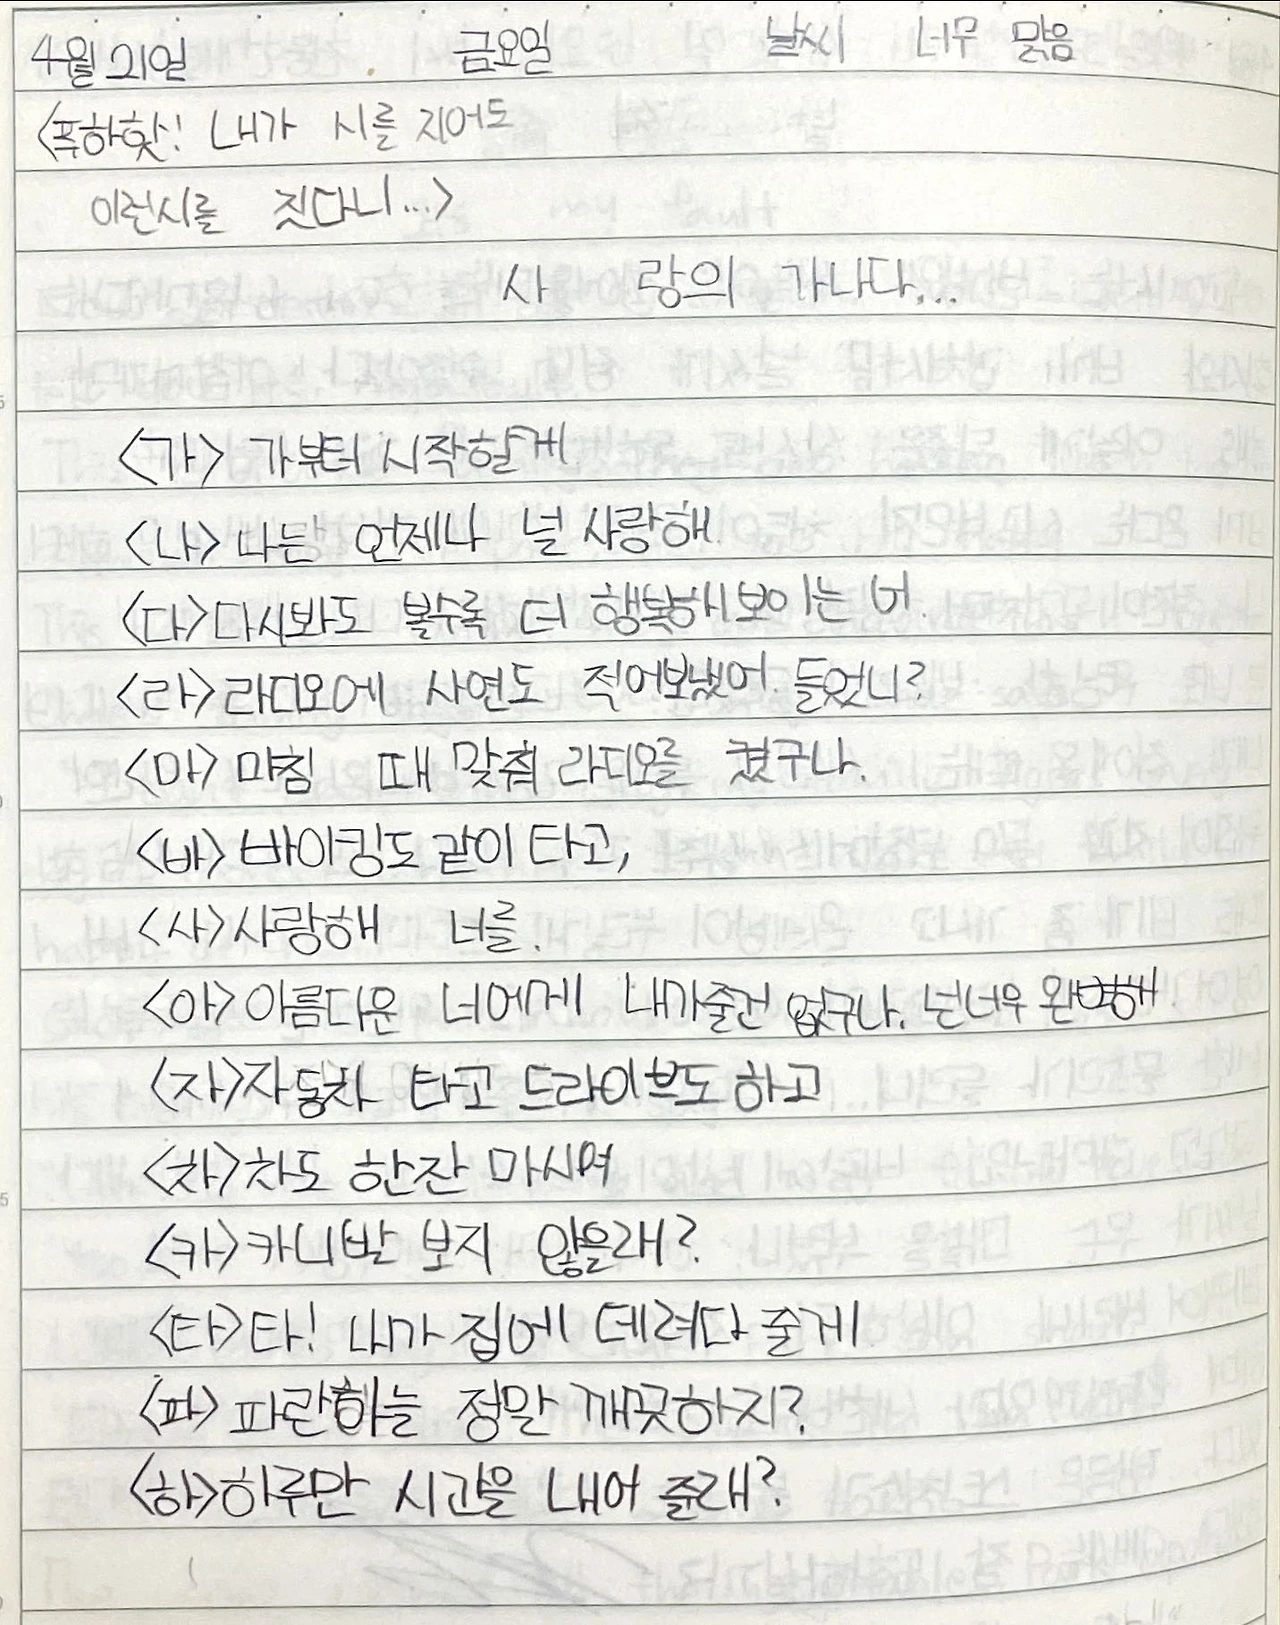 4월 21일 금요일 날씨 너무 맑음
<푸하핫! 내가 시를 지어도
이런시를 짓다니...>
사 랑의 가나다...
<가> 가부터 시작할게.
<나> 나는 언제나 널 사랑해.
<다> 다시봐도 볼수록 더 행복해보이는 너.
<라> 라디오에 사연도 적어보냈어. 들었니?
<마> 마침 때 맞춰 라디오를 켰구나.
<바> 바이킹도 같이 타고,
<사> 사랑해 너를.
<아> 아름다운 너에게 내가줄건 없구나. 넌너무 완벽해.
<자> 자동차 타고 드라이브도 하고
<차> 차도 한잔 마시며
<카> 카니발 보지 않을래?
<타> 타! 내가 집에 데려다 줄게
<파> 파란하늘 정말 깨끗하지?
<하> 하루만 시간을 내어 줄래?